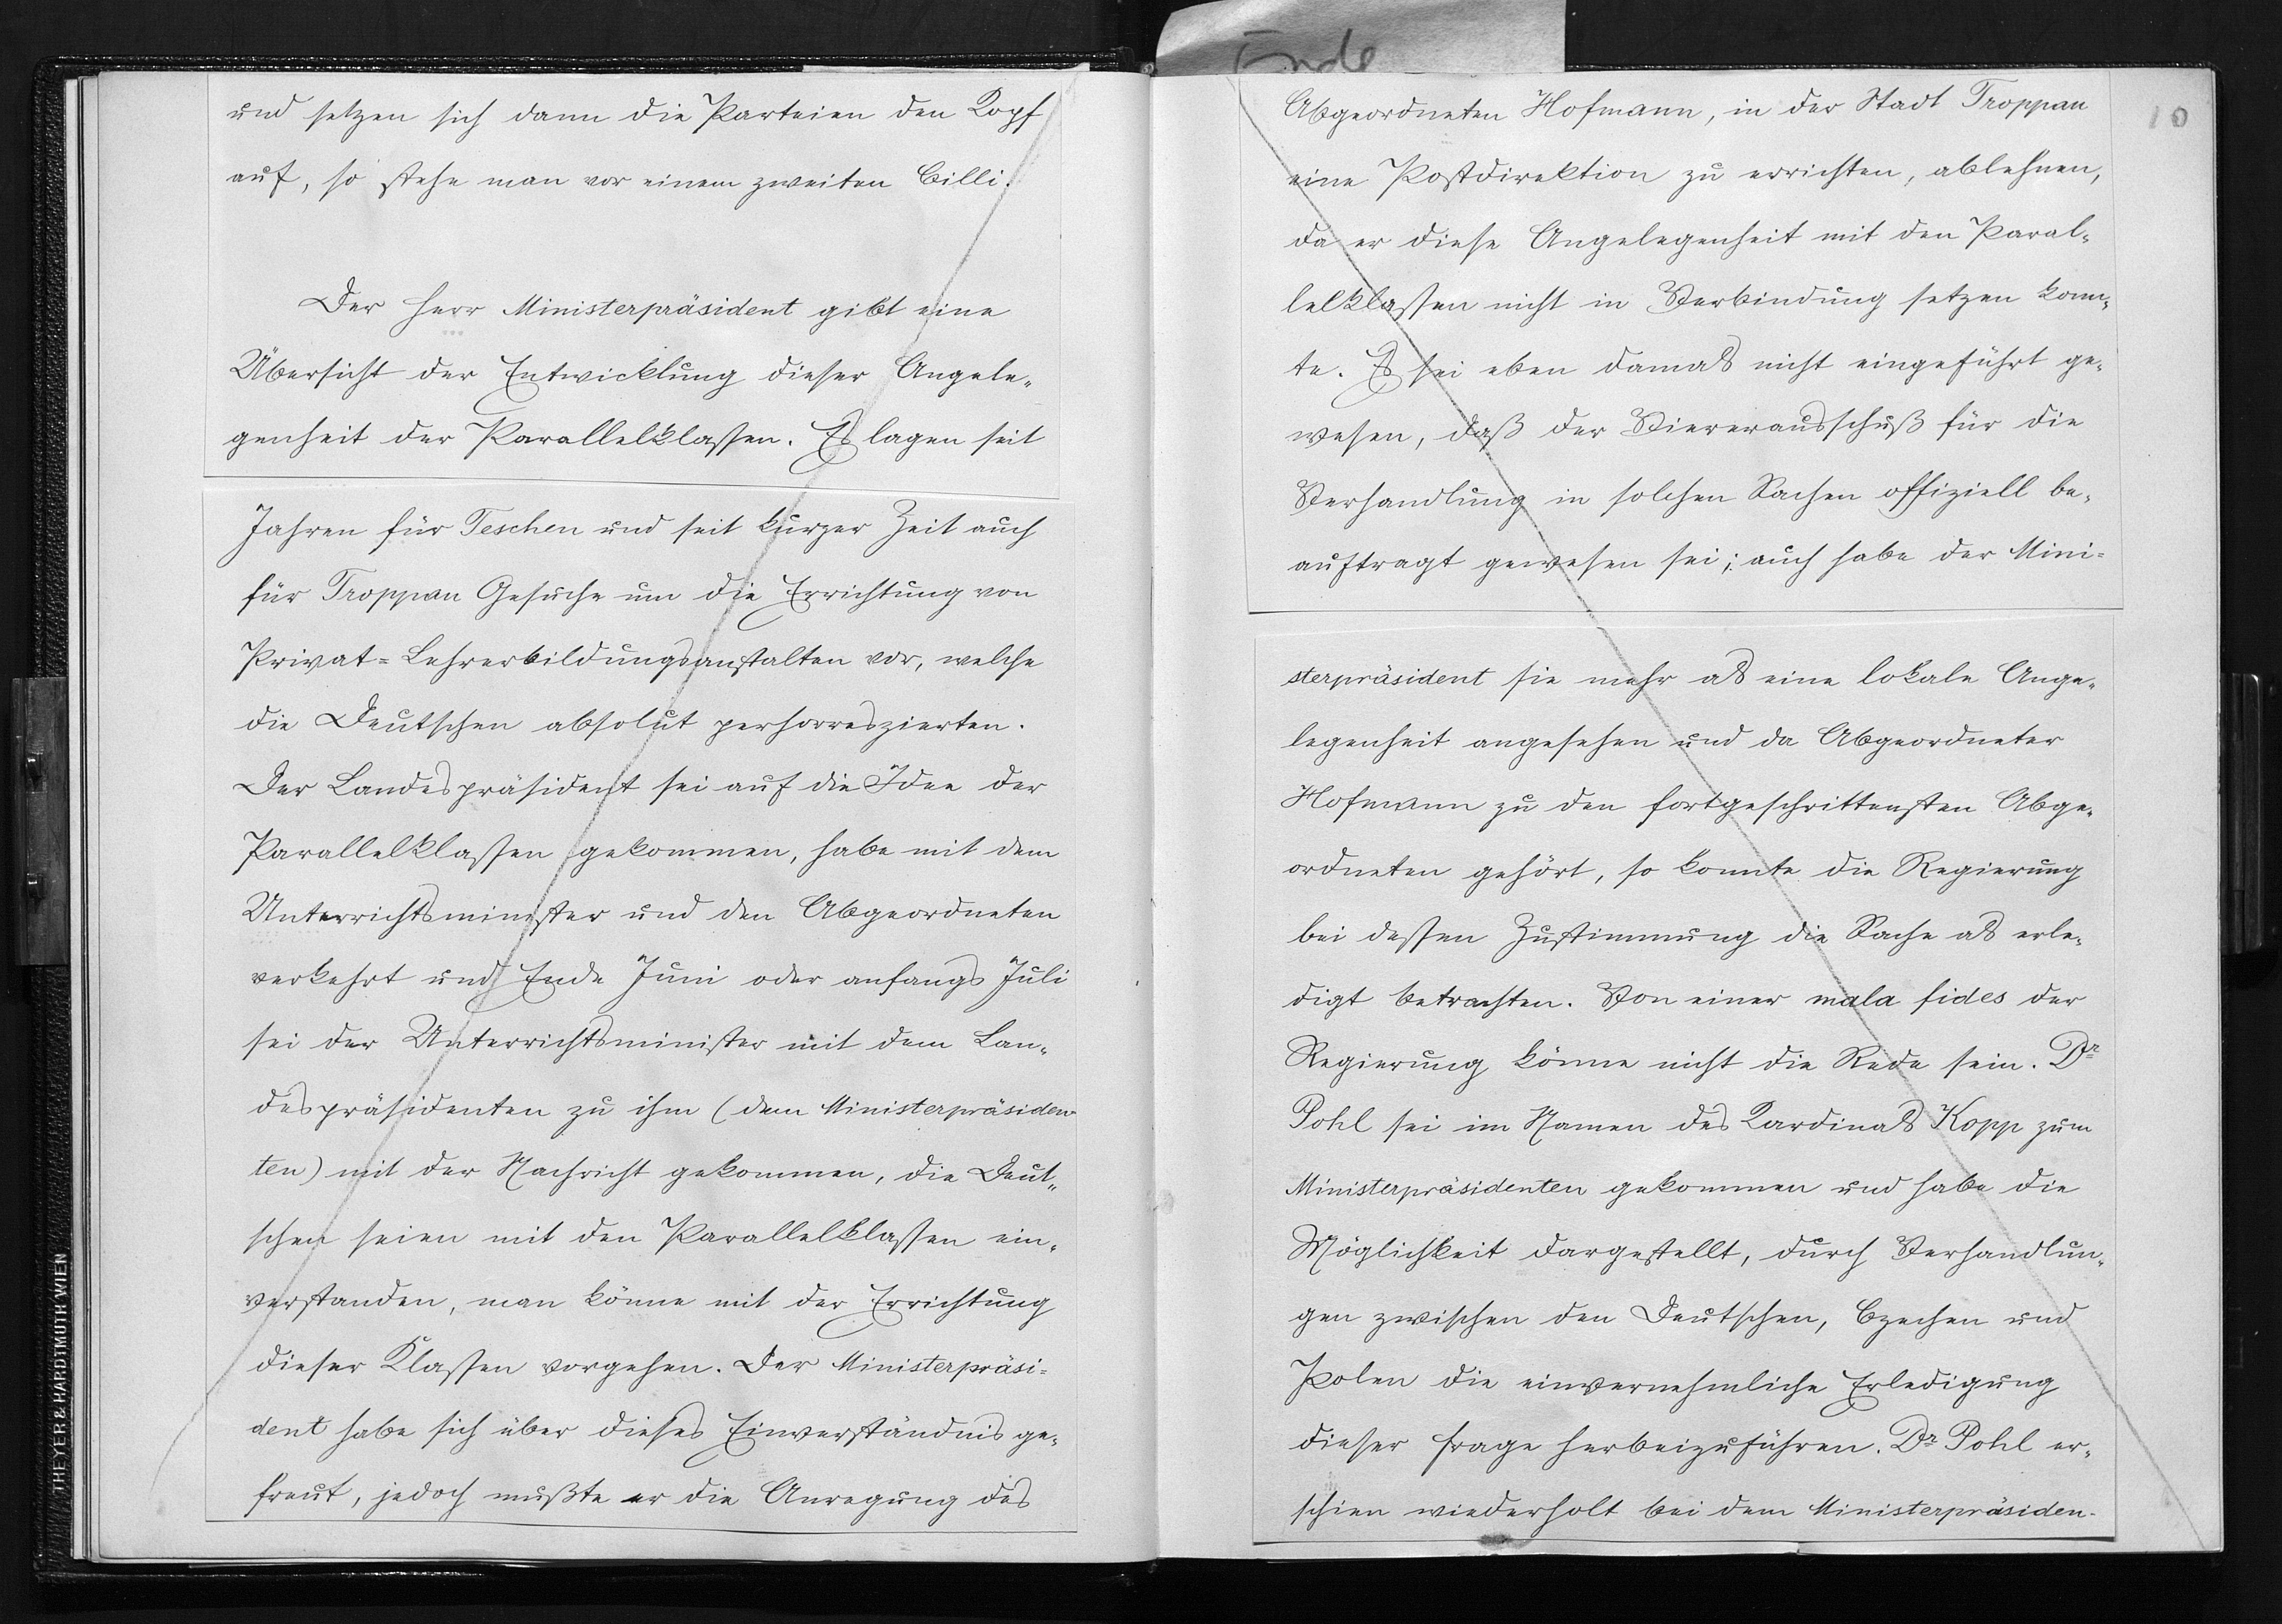 und setzen sich dann die Parteien den Kopf
auf, so stehe man vor einem zweiten Cilli.
Der Herr Ministerpräsident gibt eine
Übersicht der Entwicklung dieser Angele-
genheit der Parallelklassen. Es lagen seit
Jahren für Teschen und seit kurzer Zeit auch
für Troppau Gesuche um die Errichtung von
Privat-Lehrerbildungsanstalten vor, welche
die Deutschen absolut perhorreszierten.
Der Landespräsident sei auf die Idee der
Parallelklassen gekommen, habe mit dem
Unterrichtsminister und den Abgeordneten
verkehrt und Ende Juni oder anfangs Juli
sei der Unterrichtsminister mit dem Lan-
despräsidenten zu ihm (dem Ministerpräsiden-
ten) mit der Nachricht gekommen, die Deut-
schen seien mit den Parallelklassen ein-
verstanden, man könne mit der Errichtung
dieser Klassen vorgehen. Der Ministerpräsi-
dent habe sich über dieses Einverständnis ge-
freut, jedoch mußte er die Anregung des
Ende
10
Abgeordneten Hofmann, in der Stadt Troppau
eine Postdirektion zu errichten, ablehnen,
da er diese Angelegenheit mit den Paral-
lelklassen nicht in Verbindung setzen konn-
te. Es sei eben damals nicht eingeführt ge-
wesen, daß der Viererausschuß für die
Verhandlung in solchen Sachen offiziell be-
auftragt gewesen sei; auch habe der Mini-
sterpräsident sie mehr als eine lokale Ange-
legenheit angesehen und da Abgeordneter
Hofmann zu den fortgeschrittensten Abge-
ordneten gehört, so konnte die Regierung
bei dessen Zustimmung die Sache als erle-
digt betrachten. Von einer mala fides der
Regierung könne nicht die Rede sein. Dr
Pohl sei im Namen des Kardinals Kopp zum
Ministerpräsidenten gekommen und habe die
Möglichkeit dargestellt, durch Verhandlun-
gen zwischen den Deutschen, Czechen und
Polen die einvernehmliche Erledigung
dieser Frage herbeizuführen. Dr Pohl er-
schien wiederholt bei dem Ministerpräsiden-
THEYER & HARDTMUTH WIEN